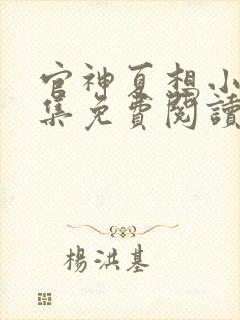 官神夏想小
集免費閱讀
楊洪基